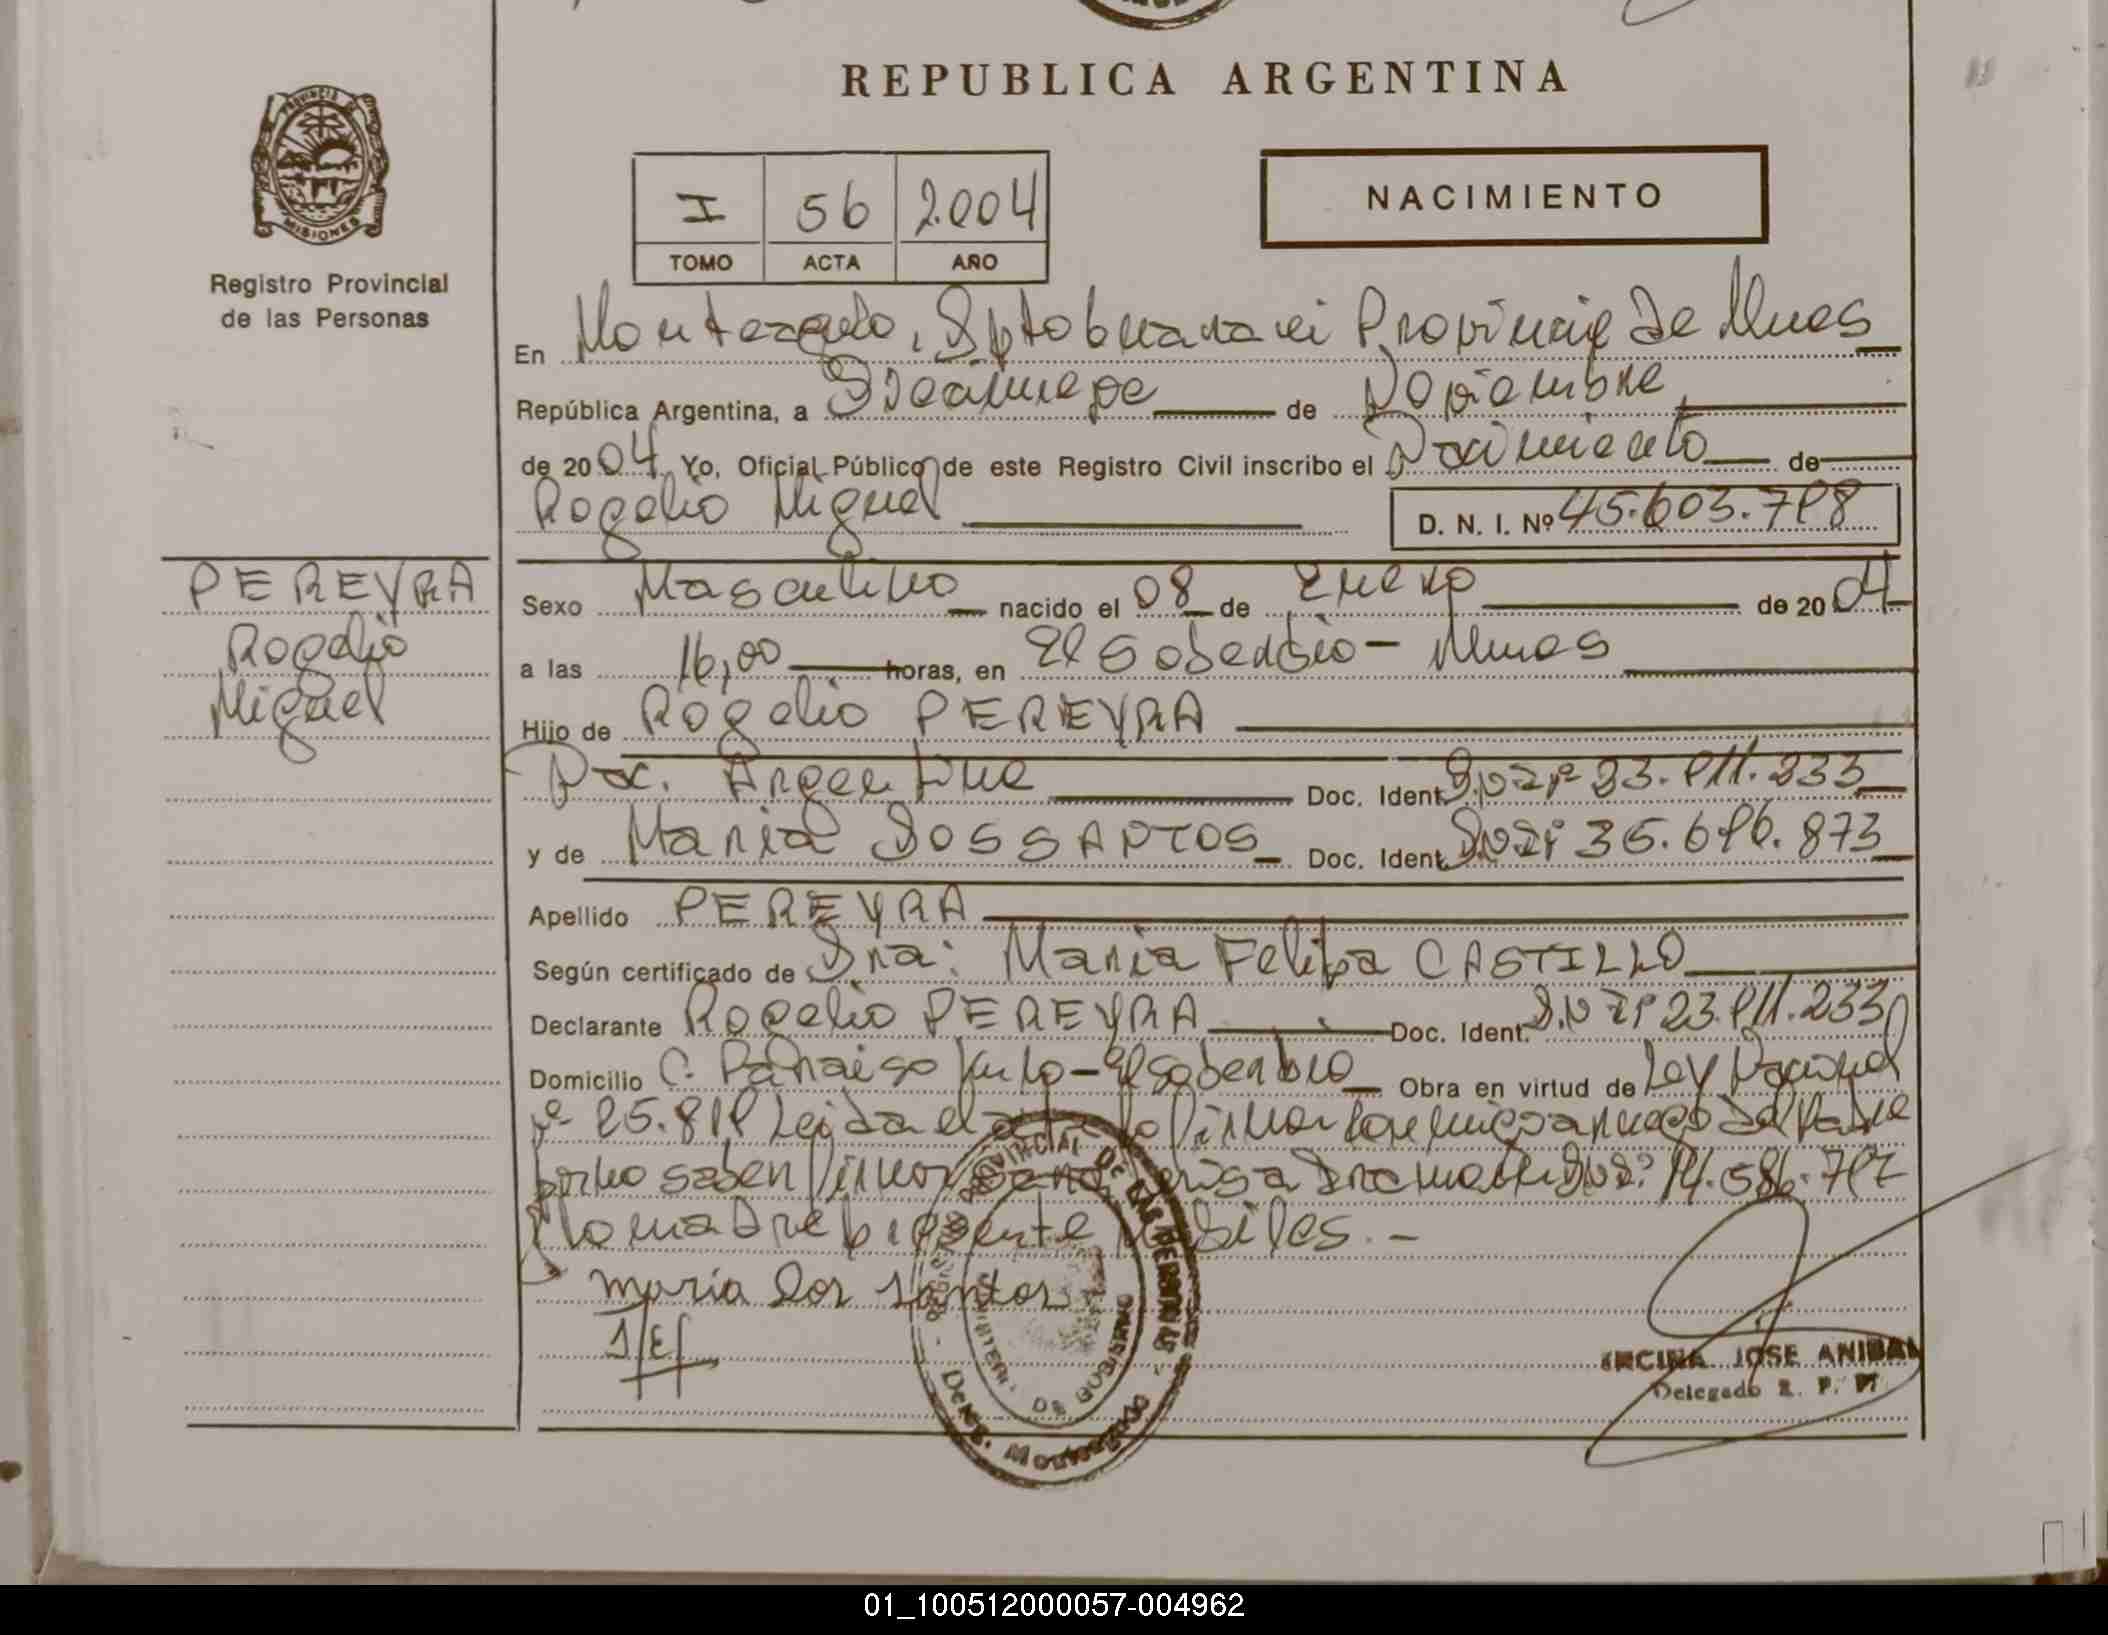 REPUBLICA ARGENTINA
PROVINCIA DE MISIONES
Registro Provincial
de las Personas
I 56 2.004
TOMO ACTA AÑO
NACIMIENTO
En Monteagudo, Provincia de Mnes
República Argentina, a Diecinueve de Noviembre
de 2004 Yo, Oficial Público de este Registro Civil inscribo el Nacimiento de
Rogelio Miguel D. N. I. Nº 45.603.798
PEREYRA
Rogelio
Miguel
Sexo Masculino nacido el 08 de Enero de 2004
a las 16,00 horas, en El Soberbio - Mnes
Hijo de Rogelio PEREYRA
Nac. Argentina Doc. Ident. D.N.I Nº 23.911.233
y de Maria DOS SANTOS Doc. Ident. D.N.I Nº 35.696.873
Apellido PEREYRA
Según certificado de Dra: Maria Felipa CASTILLO
Declarante Rogelio PEREYRA Doc. Ident. D.N.I Nº 23.911.233
Domicilio C. Paraiso Km 10 - El Soberbio Obra en virtud de Ley Nacional
Nº 25.819 Leida el acta lo firman conmigo a ruego del Padre
por no saber firmar
maria dos santos
ENCINA JOSE ANIBAL
Delegado R. P. P.
PROVINCIAL DE LAS PERSONAS
MINISTERIO DE GOBIERNO
DELEG. MONTEAGUDO
01_100512000057-004962